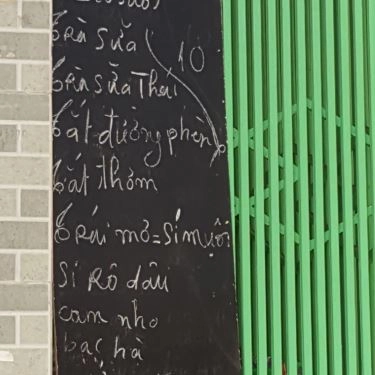 trà sữa 10
trà sữa Thái
tắt đường phèn
tắt thơm
trái mơ = Símuội
Si Rô dâu
cam nho
bạc hà